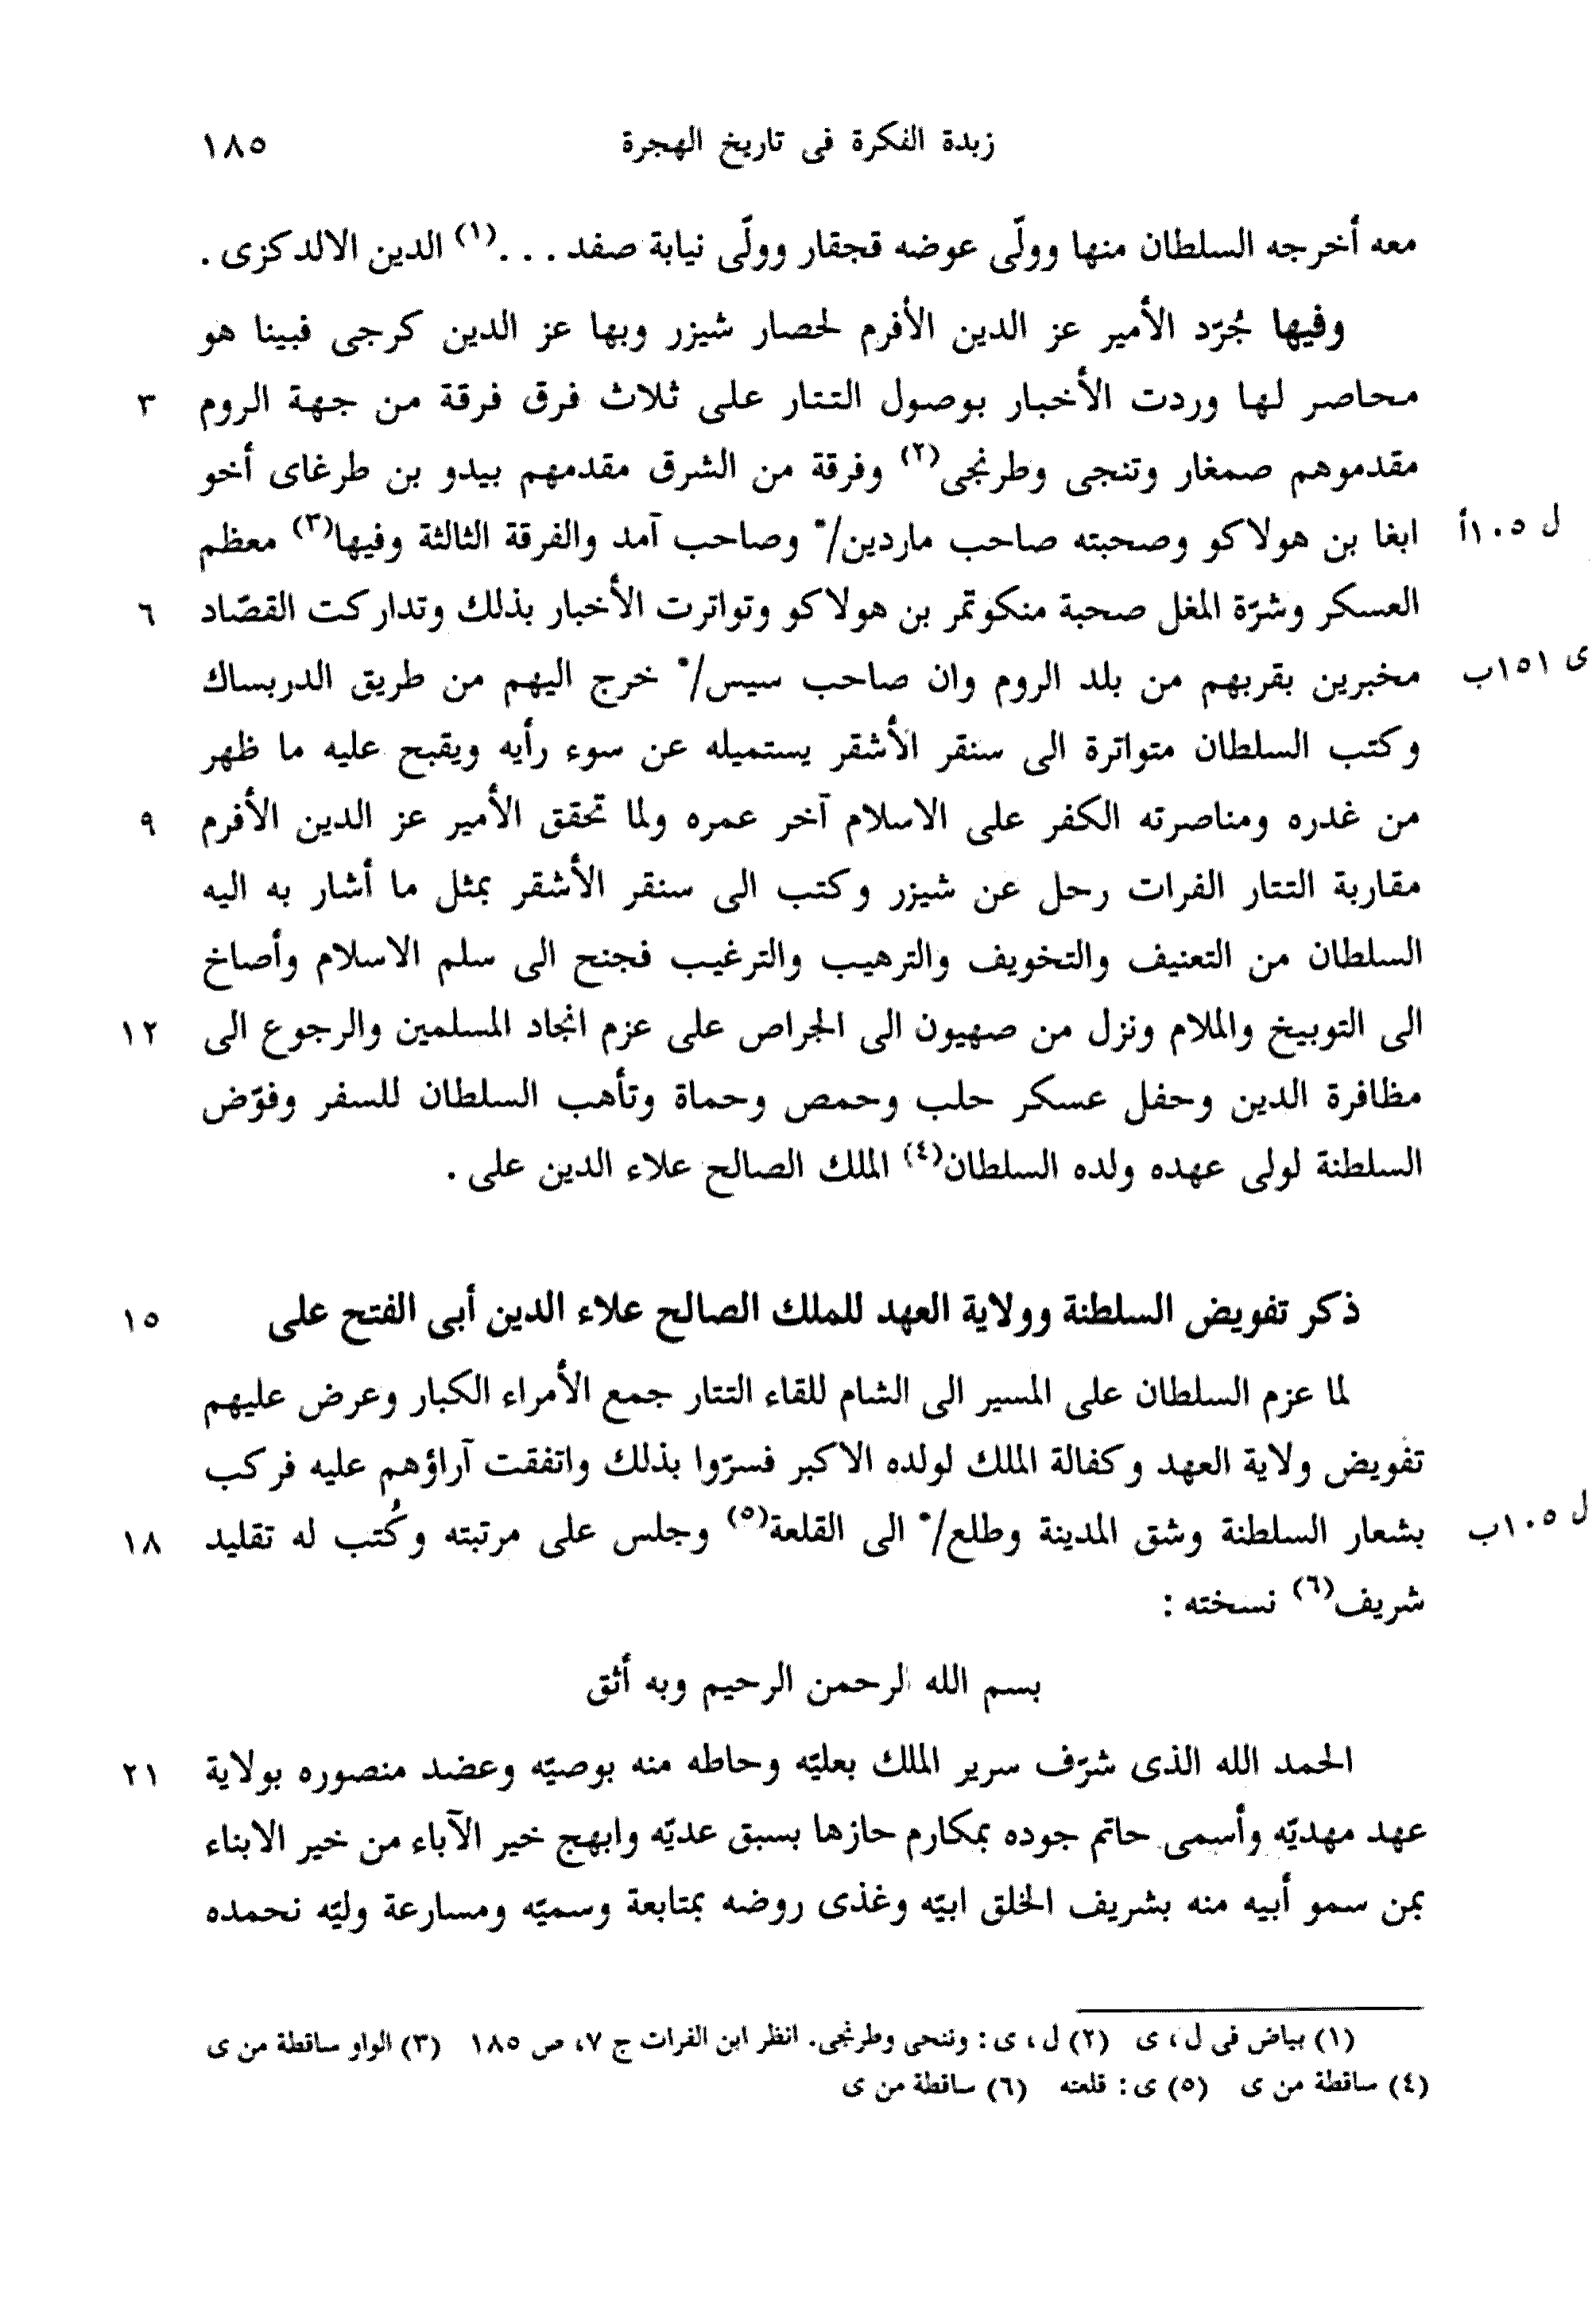 زبدة الفكرة فى تاريخ الهجرة ١٨٥
معه أخرجه السلطان منها وولّى عوضه قجقار وولّى نيابة صفد . . .(١) الدين الالدكزى .
وفيها جُرّد الأمير عز الدين الأفرم لحصار شيزر وبها عز الدين كرجى فبينا هو
محاصر لها وردت الأخبار بوصول التتار على ثلاث فرق فرقة من جهة الروم ٣
مقدموهم صمغار وتنجى وطرنجى(٢) وفرقة من الشرق مقدمهم بيدو بن طرغاى أخو
ل ١٠٥أ ابغا بن هولاكو وصحبته صاحب ماردين/* وصاحب آمد والفرقة الثالثة وفيها(٣) معظم
العسكر وشرّة المغل صحبة منكوتمر بن هولاكو وتواترت الأخبار بذلك وتداركت القصّاد ٦
ى ١٥١ب مخبرين بقربهم من بلد الروم وان صاحب سيس/* خرج اليهم من طريق الدربساك
وكتب السلطان متواترة الى سنقر الأشقر يستميله عن سوء رأيه ويقبح عليه ما ظهر
من غدره ومناصرته الكفر على الاسلام آخر عمره ولما تحقق الأمير عز الدين الأفرم ٩
مقاربة التتار الفرات رحل عن شيزر وكتب الى سنقر الأشقر بمثل ما أشار به اليه
السلطان من التعنيف والتخويف والترهيب والترغيب فجنح الى سلم الاسلام وأصاخ
الى التوبيخ والملام ونزل من صهيون الى الجراص على عزم انجاد المسلمين والرجوع الى ١٢
مظافرة الدين وحفل عسكر حلب وحمص وحماة وتأهب السلطان للسفر وفوّض
السلطنة لولى عهده ولده السلطان(٤) الملك الصالح علاء الدين على .
ذكر تفويض السلطنة وولاية العهد للملك الصالح علاء الدين أبى الفتح على ١٥
لما عزم السلطان على المسير الى الشام للقاء التتار جمع الأمراء الكبار وعرض عليهم
تفويض ولاية العهد وكفالة الملك لولده الاكبر فسرّوا بذلك واتفقت آراؤهم عليه فركب
ل ١٠٥ب بشعار السلطنة وشق المدينة وطلع/* الى القلعة(٥) وجلس على مرتبته وكُتب له تقليد ١٨
شريف(٦) نسخته :
بسم الله الرحمن الرحيم وبه أثق
الحمد الله الذى شرّف سرير الملك بعليّه وحاطه منه بوصيّه وعضد منصوره بولاية ٢١
عهد مهديّه وأسمى حاتم جوده بمكارم حازها بسبق عديّه وابهج خير الآباء من خير الابناء
بمن سمو أبيه منه بشريف الخلق ابيّه وغذى روضه بمتابعة وسميّه ومسارعة وليّه نحمده
(١) بياض فى ل، ى (٢) ل، ى: وننحى وطرنجى. انظر ابن الفرات ج ٧، ص ١٨٥ (٣) الواو ساقطة من ى
(٤) ساقطة من ى (٥) ى: قلعته (٦) ساقطة من ى